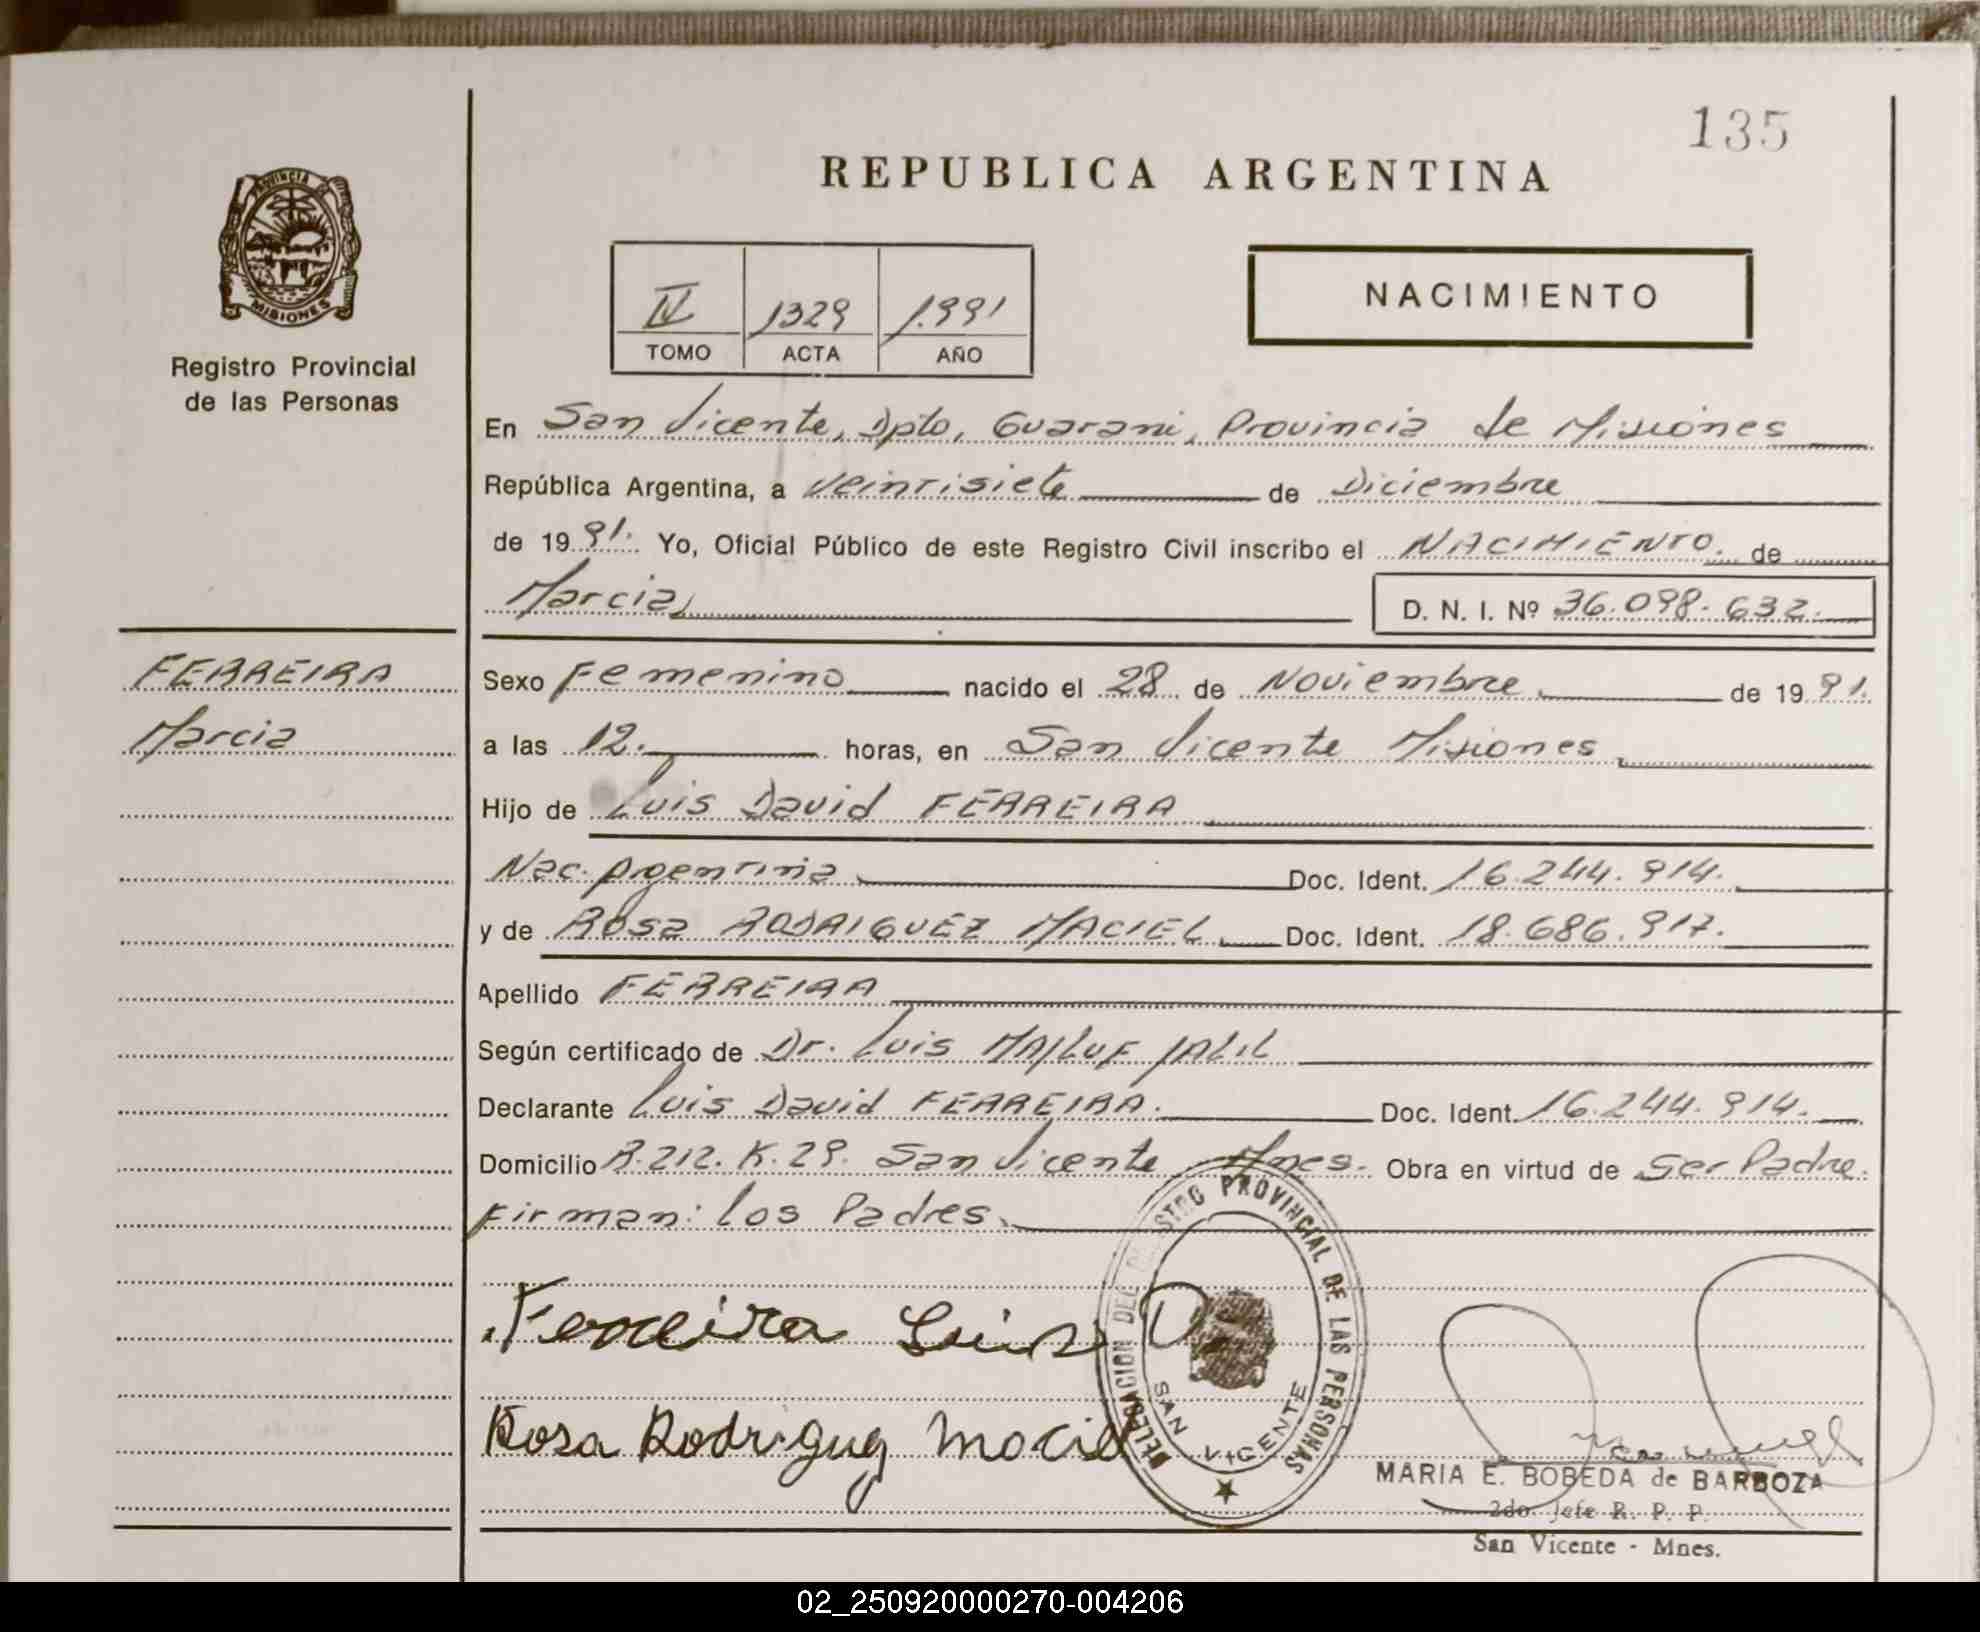 135
REPUBLICA ARGENTINA
PROVINCIA DE
MISIONES
Registro Provincial
de las Personas
IV 1329 1.991
TOMO ACTA AÑO
NACIMIENTO
En San Vicente, Dpto, Guarani, Provincia de Misiones
República Argentina, a Veintisiete de Diciembre
de 1991. Yo, Oficial Público de este Registro Civil inscribo el NACIMIENTO. de
Marcia, D. N. I. Nº 36.098.632.
FERREIRA
Marcia
Sexo Femenino nacido el 28 de Noviembre de 1991.
a las 12. horas, en San Vicente Misiones
Hijo de Luis David FERREIRA
Nac. Argentina Doc. Ident. 16.244.914.
y de Rosa RODRIGUEZ MACIEL Doc. Ident. 18.686.917.
Apellido FERREIRA
Según certificado de Dr. Luis MAJLUF JALIL
Declarante Luis David FERREIRA. Doc. Ident. 16.244.914.
Domicilio R.212. K.29. San Vicente Mnes. Obra en virtud de Ser Padre.
Firman: Los Padres.
Ferreira Luis D
Rosa Rodriguez Maciel
DELEGACION DEL REGISTRO PROVINCIAL DE LAS PERSONAS
SAN VICENTE
MARIA E. BOBEDA de BARBOZA
2do. Jefe R. P. P.
San Vicente - Mnes.
02_250920000270-004206